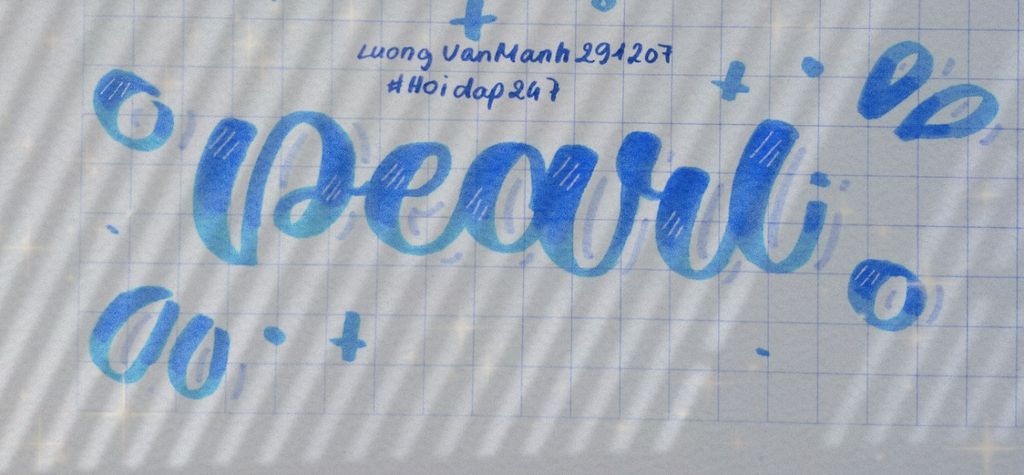 Luong VanManh291207
#Hoidap247
pearl